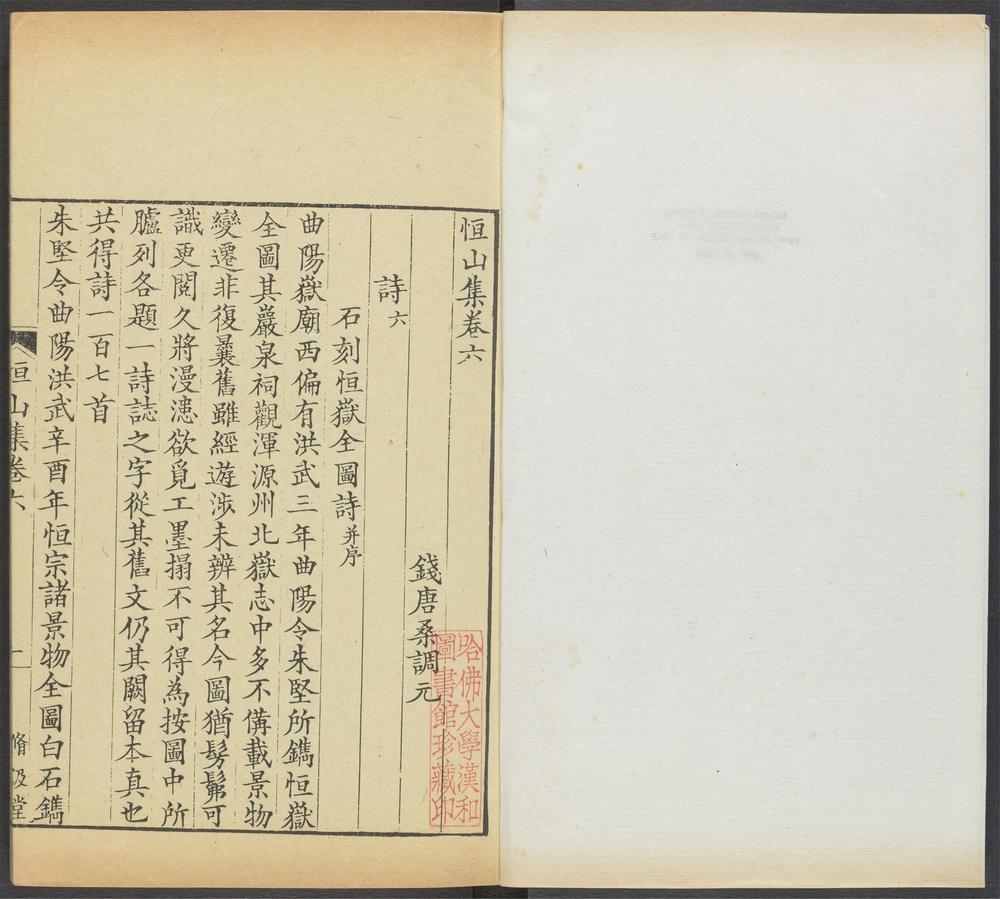 恒山集卷六
錢唐桑調元
詩六
石刻恒嶽全圖詩并序
曲陽嶽廟西偏有洪武三年曲陽令朱堅所鐫恒嶽
全圖其巖泉祠觀渾源州北嶽志中多不備載景物
變遷非復曩舊雖經遊涉未辨其名今圖猶髣髴可
識更閱久將漫漶欲覓工墨搨不可得為按圖中所
臚列各題一詩誌之字從其舊文仍其闕留本真也
共得詩一百七首
朱堅令曲陽洪武辛酉年恒宗諸景物全圖白石鐫
恒山集卷六
一
脩汲堂
哈佛大學漢和
圖書館珍藏印